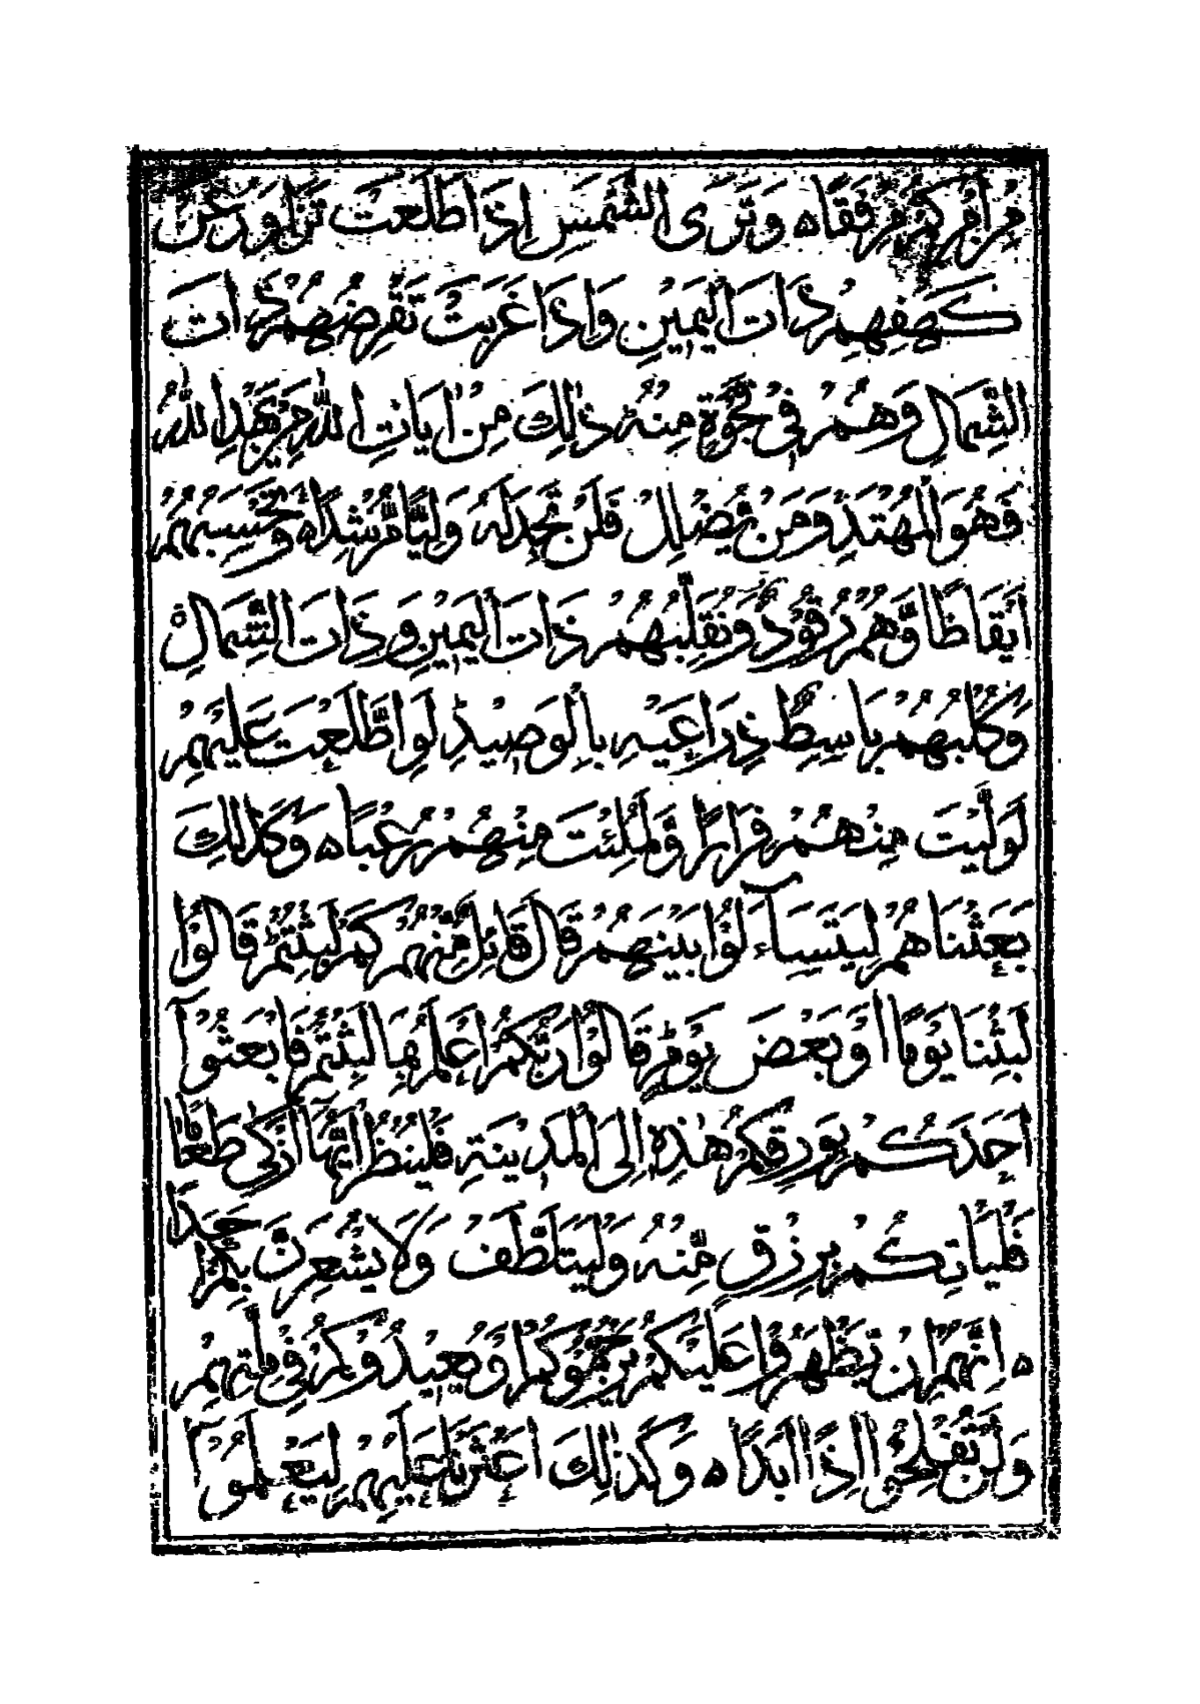 مِنْ اَمْرِكُمْ مِرْفَقًا ه وَتَرَى الشَّمْسَ اِذَا طَلَعَتْ تَزَاوَرُ عَنْ
كَهْفِهِمْ ذَاتَ الْيَمِيْنِ وَاِذَا غَرَبَتْ تَقْرِضُهُمْ ذَاتَ
الشِّمَالِ وَهُمْ فِيْ فَجْوَةٍ مِنْهُ ط ذٰلِكَ مِنْ اٰيَاتِ اللّٰهِ ط مَنْ يَهْدِ اللّٰهُ
فَهُوَ الْمُهْتَدِ وَمَنْ يُضْلِلْ فَلَنْ تَجِدَ لَهُ وَلِيًّا مُّرْشِدًا ه وَتَحْسَبُهُمْ
اَيْقَاظًا وَّهُمْ رُقُوْدٌ وَنُقَلِّبُهُمْ ذَاتَ الْيَمِيْنِ وَذَاتَ الشِّمَالِ
وَكَلْبُهُمْ بَاسِطٌ ذِرَاعَيْهِ بِالْوَصِيْدِ ط لَوِ اطَّلَعْتَ عَلَيْهِمْ
لَوَلَّيْتَ مِنْهُمْ فِرَارًا وَّلَمُلِئْتَ مِنْهُمْ رُعْبًا ه وَكَذٰلِكَ
بَعَثْنَاهُمْ لِيَتَسَآءَلُوْا بَيْنَهُمْ قَالَ قَائِلٌ مِّنْهُمْ كَمْ لَبِثْتُمْ ط قَالُوْا
لَبِثْنَا يَوْمًا اَوْ بَعْضَ يَوْمٍ ط قَالُوْا رَبُّكُمْ اَعْلَمُ بِمَا لَبِثْتُمْ فَابْعَثُوْآ
اَحَدَكُمْ بِوَرِقِكُمْ هٰذِهٖ اِلَى الْمَدِيْنَةِ فَلْيَنْظُرْ اَيُّهَا اَزْكٰى طَعَامًا
فَلْيَاْتِكُمْ بِرِزْقٍ مِّنْهُ وَلْيَتَلَطَّفْ وَلَا يُشْعِرَنَّ بِكُمْ اَحَدًا
ه اِنَّهُمْ اِنْ يَّظْهَرُوْا عَلَيْكُمْ يَرْجُمُوْكُمْ اَوْ يُعِيْدُوْكُمْ فِيْ مِلَّتِهِمْ
وَلَنْ تُفْلِحُوْا اِذًا اَبَدًا ه وَكَذٰلِكَ اَعْثَرْنَا عَلَيْهِمْ لِيَعْلَمُوْآ